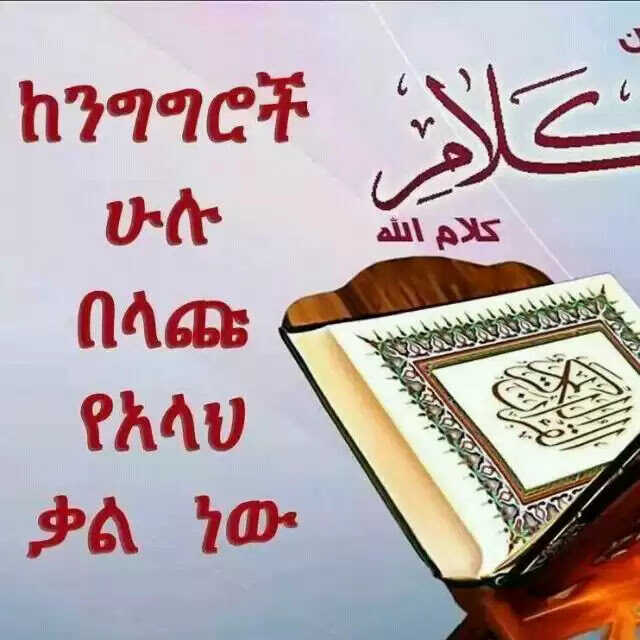 ከንግግሮች
ሁሉ
በላጩ
የአላህ
ቃል ነው
كلام
كلام الله